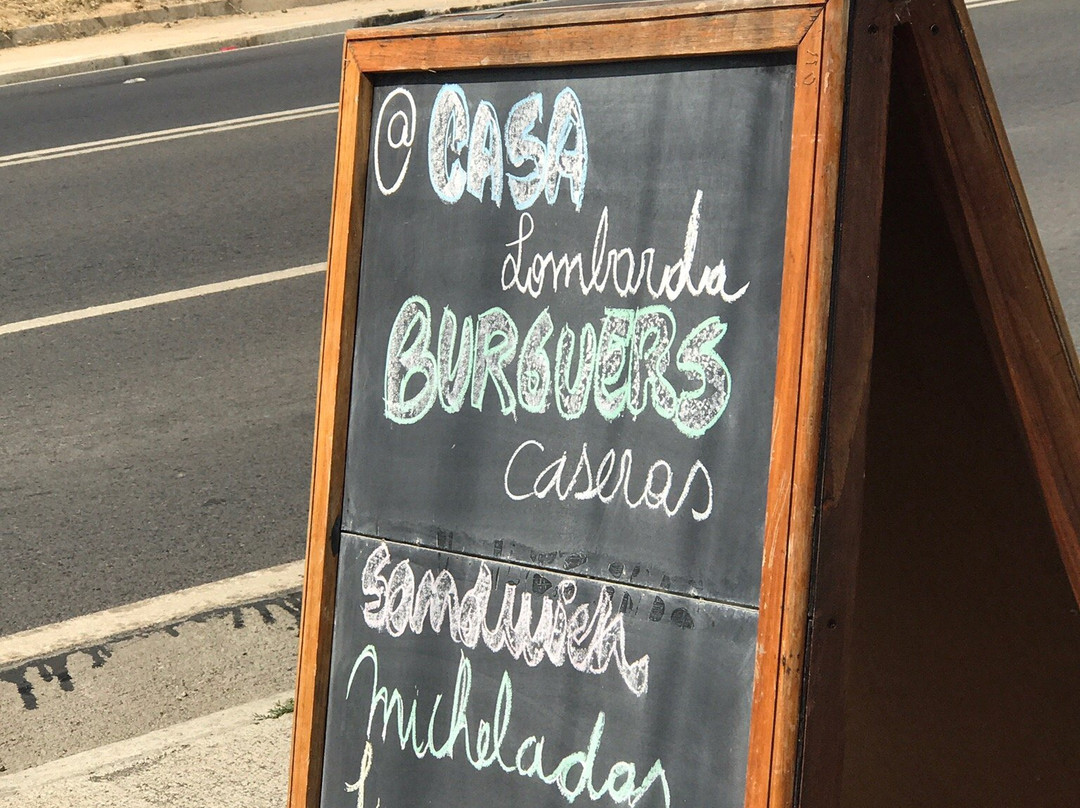 @ CASA
Lombarda
BURGUERS
caseras
Sandwich
micheladas